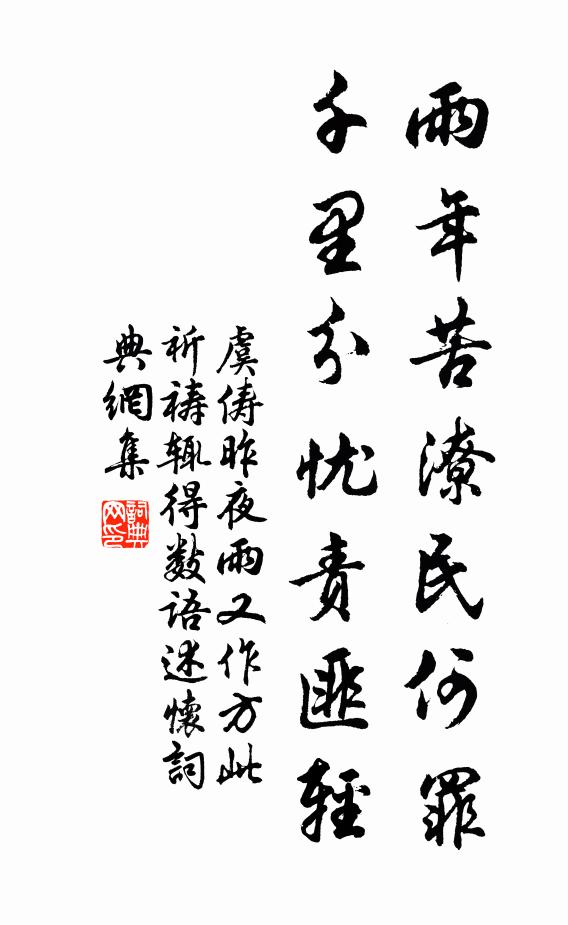 兩年苦潦民何罪
千里分忧責匪輕
虞儔昨夜雨又作方此
祈禱輒得数語述懷詞
典網集
詞典
网印